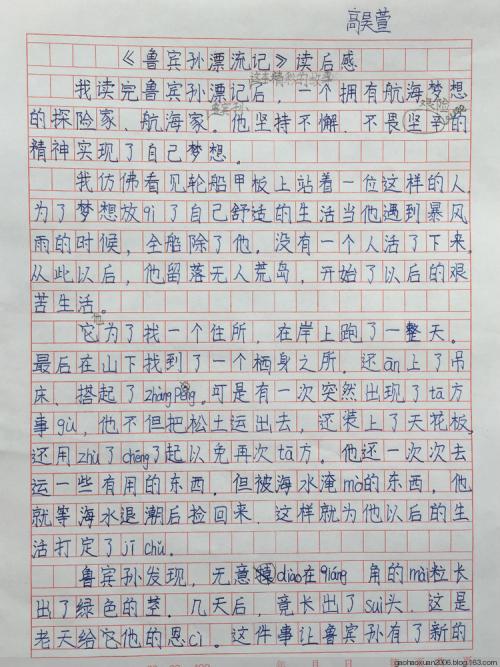 高昊萱
《鲁宾孙漂流记》读后感
这本精彩的故事
我读完鲁宾孙漂漂记后，一个拥有航海梦想
鲁宾孙 艰险
的探险家、航海家。他坚持不懈、不畏坚辛的
精神实现了自己梦想。
我仿佛看见轮船甲板上站着一位这样的人，
为了梦想放qì了自己舒适的生活当他遇到暴风
雨的时候，全船除了他，没有一个人活了下来。
从此以后，他留落无人荒岛，开始了以后的艰
苦生活。
他
它为了找一个住所，在岸上跑了一整天。
最后在山下找到了一个栖身之所，还ān上了吊
床、搭起了zhàng peng。可是有一次突然出现了tā方
事gù，他不但把松土运出去，还装上了天花板，
还用zhù了chēng了起以免再次tā方。他还一次次去
运一些有用的东西，但被海水淹mò的东西，他
就等海水退潮后捡回来，这样就为他以后的生
活打定了jī chǔ。
鲁宾孙发现，无意diào在qiáng角的mài粒长
出了绿色的茎，几天后，竟长出了suì头，这是
老天给它他的恩cì。这件事让鲁宾孙有了新的
gaohaoxuan2006.blog.163.com